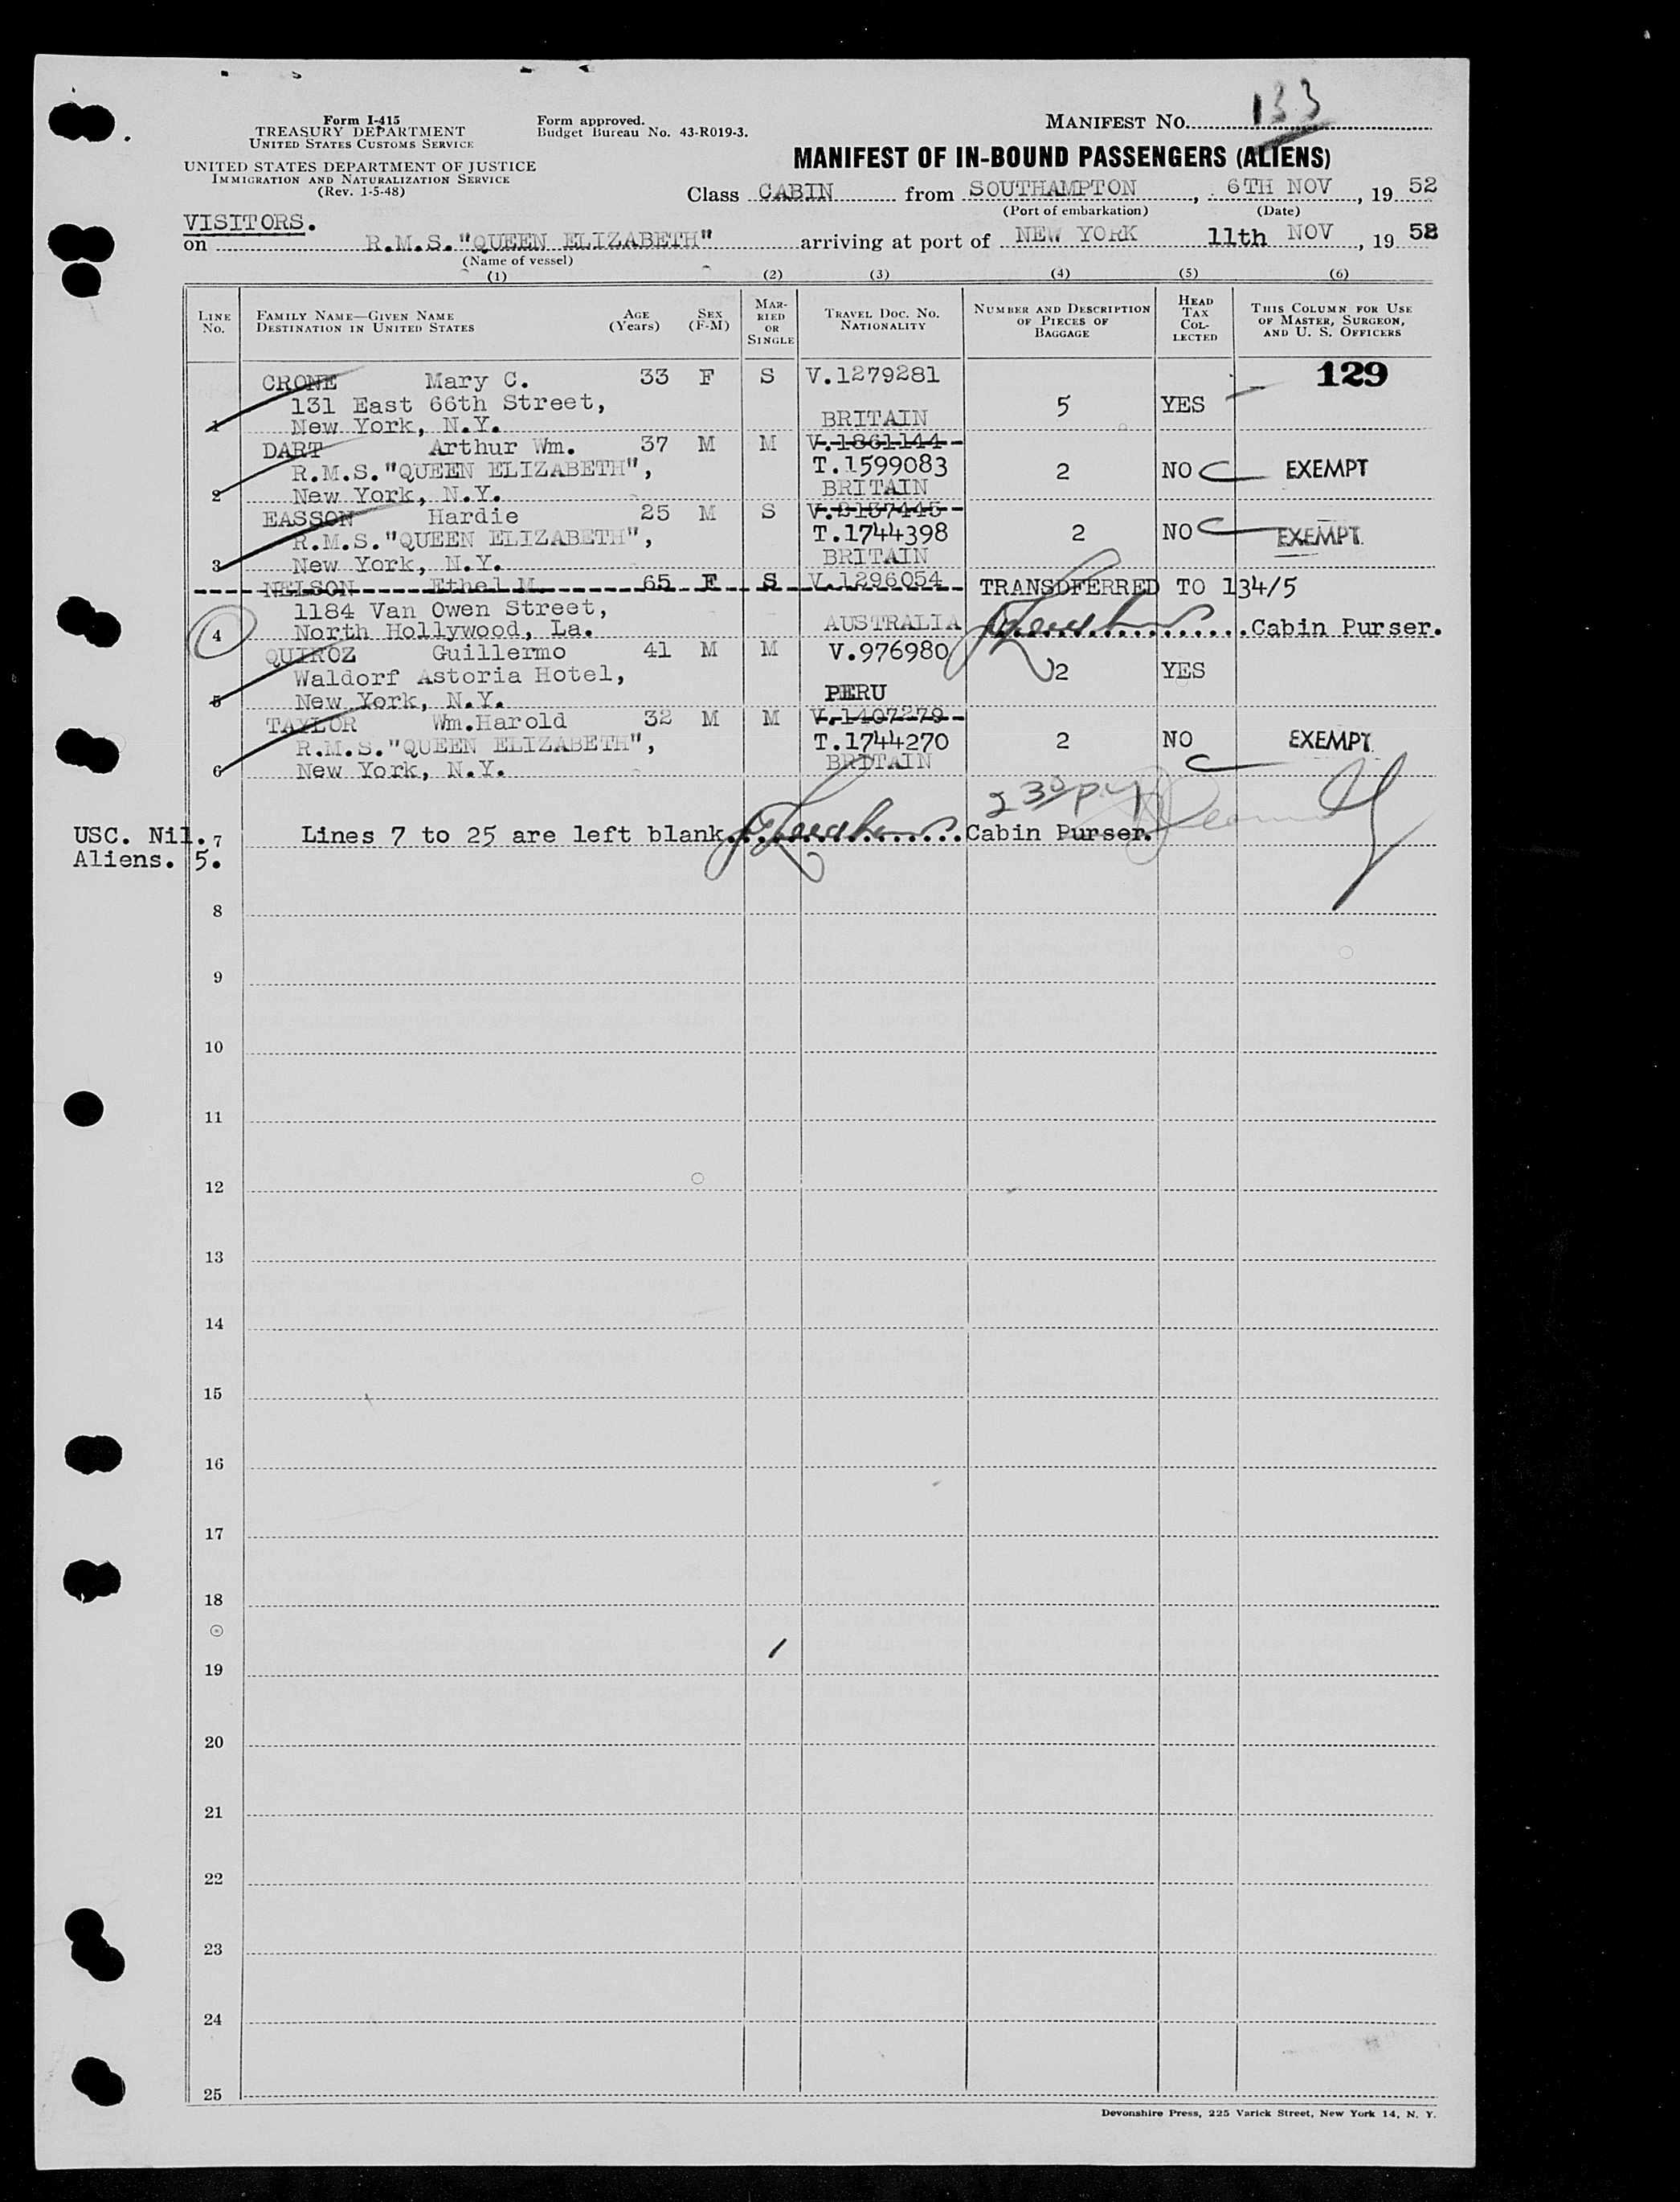 133
Form I-415
TREASURY DEPARTMENT
UNITED STATES CUSTOMS SERVICE
Form approved.
Budget Bureau No. 43-R019-3.
MANIFEST NO.
UNITED STATES DEPARTMENT OF JUSTICE
IMMIGRATION AND NATURALIZATION SERVICE
(Rev. 1-5-48)
MANIFEST OF IN-BOUND PASSENGERS (ALIENS)
Class CABIN from SOUTHAMPTON, 6TH NOV, 19 52
(Port of embarkation) (Date)
VISITORS.
on R.M.S."QUEEN ELIZABETH" arriving at port of NEW YORK 11th NOV, 19 52
(Name of vessel)
(1) (2) (3) (4) (5) (6)
LINE NO. FAMILY NAME—GIVEN NAME DESTINATION IN UNITED STATES AGE (Years) SEX (F-M) MARRIED OR SINGLE TRAVEL DOC. NO. NATIONALITY NUMBER AND DESCRIPTION OF PIECES OF BAGGAGE HEAD TAX COLLECTED THIS COLUMN FOR USE OF MASTER, SURGEON, AND U. S. OFFICERS
129
CRONE Mary C. 33 F S V.1279281
131 East 66th Street, 5 YES
1 New York, N.Y. BRITAIN
DART Arthur Wm. 37 M M V.1861144
R.M.S."QUEEN ELIZABETH", T.1599083 2 NO EXEMPT
2 New York, N.Y. BRITAIN
EASSON Hardie 25 M S V.2137445
R.M.S."QUEEN ELIZABETH", T.1744398 2 NO EXEMPT.
3 New York, N.Y. BRITAIN
NELSON Ethel M. 65 F S V.1296054 TRANSDFERRED TO 134/5
1184 Van Owen Street,
4 North Hollywood, La. AUSTRALIA Cabin Purser.
QUIROZ Guillermo 41 M M V.976980
Waldorf Astoria Hotel, 2 YES
5 New York, N.Y. PERU
TAYLOR Wm.Harold 32 M M V.1407279
R.M.S."QUEEN ELIZABETH", T.1744270 2 NO EXEMPT.
6 New York, N.Y. BRITAIN
USC. Nil. 7 Lines 7 to 25 are left blank. Cabin Purser.
Aliens. 5.
8
9
10
11
12
13
14
15
16
17
18
19
20
21
22
23
24
25
Devonshire Press, 225 Varick Street, New York 14, N. Y.